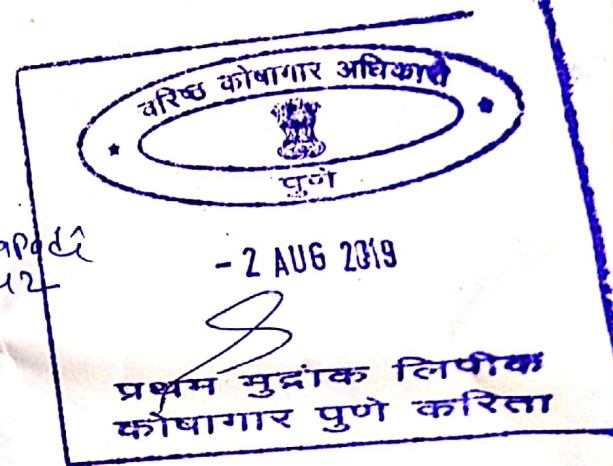 वरिष्ठ कोषागार अधिकारी
पुणे
- 2 AUG 2019
प्रथम मुद्रांक लिपीक
कोषागार पुणे करिता